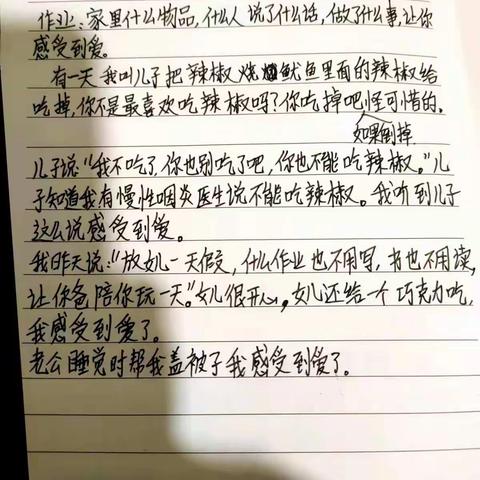 作业:家里什么物品,什么人说了什么话,做了什么事,让你
感受到爱。
有一天我叫儿子把辣椒鱿鱼里面的辣椒给
吃掉,你不是最喜欢吃辣椒吗?你吃掉吧怪可惜的。
如果倒掉
儿子说:“我不吃了,你也别吃了吧,你也不能吃辣椒。”儿
子知道我有慢性咽炎医生说不能吃辣椒。我听到儿子
这么说感受到爱。
我昨天说:“放女儿一天假,什么作业也不用写,书也不用读,
让你爸陪你玩一天。”女儿很开心,女儿还给一个巧克力吃,
我感受到爱了。
老公睡觉时帮我盖被子我感受到爱了。